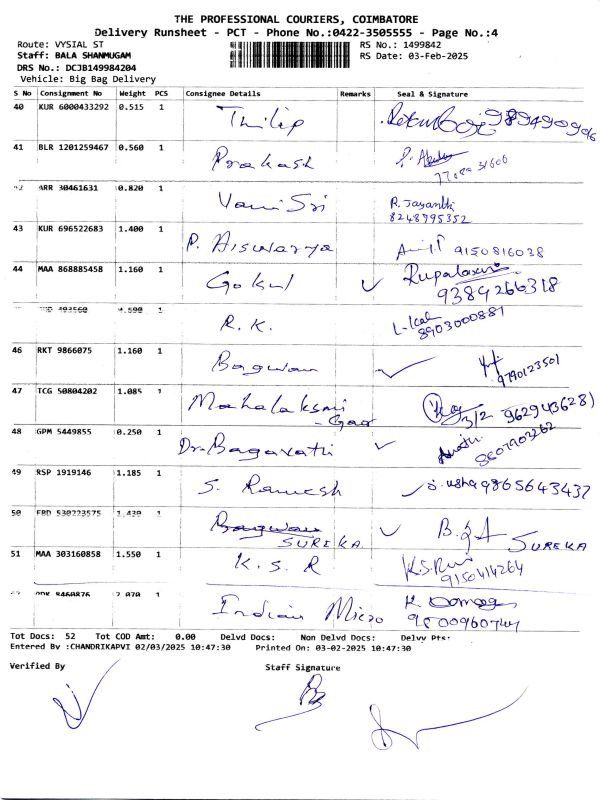 THE PROFESSIONAL COURIERS, COIMBATORE
Delivery Runsheet - PCT - Phone No.:0422-3505555 - Page No.:4
Route: VYSIAL ST RS No.: 1499842
Staff: BALA SHANMUGAM RS Date: 03-Feb-2025
DRS No.: DCJB149984204
Vehicle: Big Bag Delivery
S No Consignment No Weight PCS Consignee Details Remarks Seal & Signature
40 KUR 6000433292 0.515 1 Thilip
41 BLR 1201259467 0.560 1 Prakash
ARR 30461631 0.820 1 Vani Sri R. Jayanthi
8248795352
43 KUR 696522683 1.400 1 P. Aiswarya 9150816038
44 MAA 868885458 1.160 1 Gokul Rupalaxmi
9384266318
1 R. K.
8903000881
46 RKT 9866075 1.160 1 Bagwan 9790123501
47 TCG 50804202 1.085 1 Mahalakshmi
48 GPM 5449855 0.250 1 Dr. Bagavathi
49 RSP 1919146 1.185 1 S. Ramesh usha 9865643437
50 FBD 530223575 1.430 1 Bagwan
SUREKA SUREKA
51 MAA 303160858 1.550 1 K. S. R K.S.
9150414264
1 Indian Micro
Tot Docs: 52 Tot COD Amt: 0.00 Delvd Docs: Non Delvd Docs: Delvy Pts:
Entered By :CHANDRIKAPVI 02/03/2025 10:47:30 Printed On: 03-02-2025 10:47:30
Verified By Staff Signature